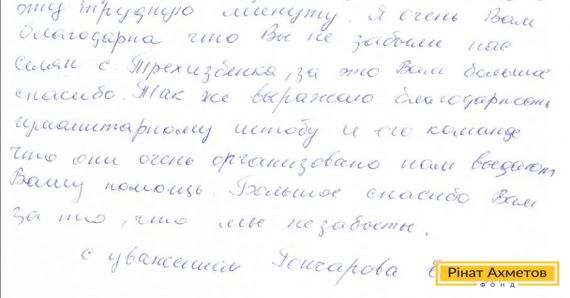 эту трудную минуту. Я очень Вам
благодарна что Вы не забыли нас
семян с. Трехизбенка, за это Вам большое
спасибо. Так же выражаю благодарность
гуманитарному штабу и его команде
что они очень организовано нам выдают
Вашу помощь. Большое спасибо Вам
за то, что мы не забыты.
с уважением Гончарова
Рінат Ахметов
ФОНД